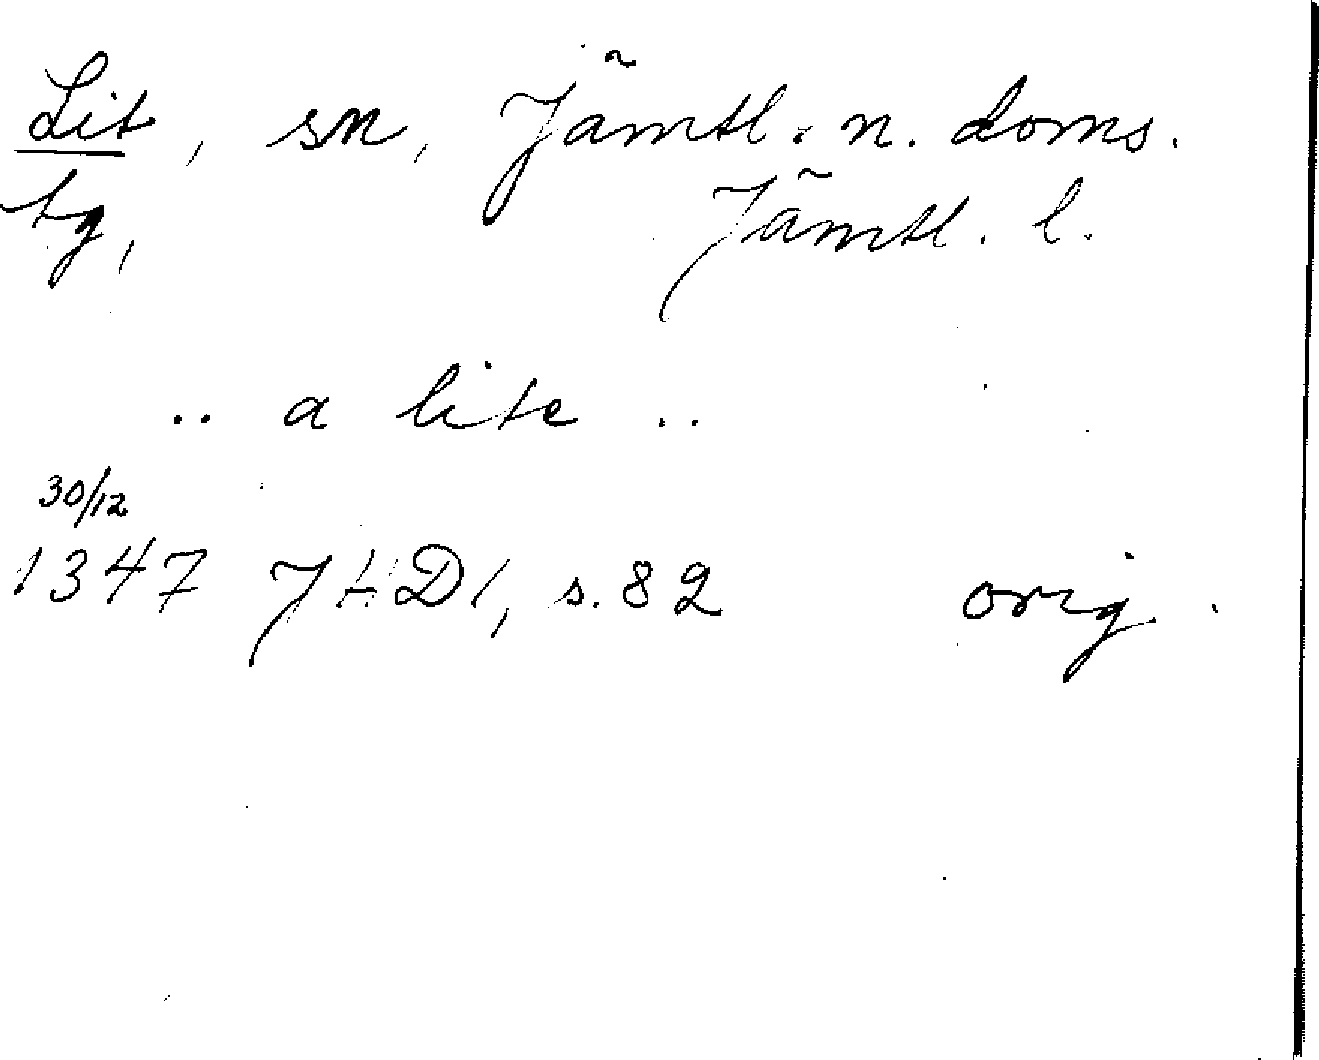 Lit, sn, Jämtl. n. doms.
tg, Jämtl. l.
.. a lite ..
30/12
1347 JHD 1, s. 82 orig.